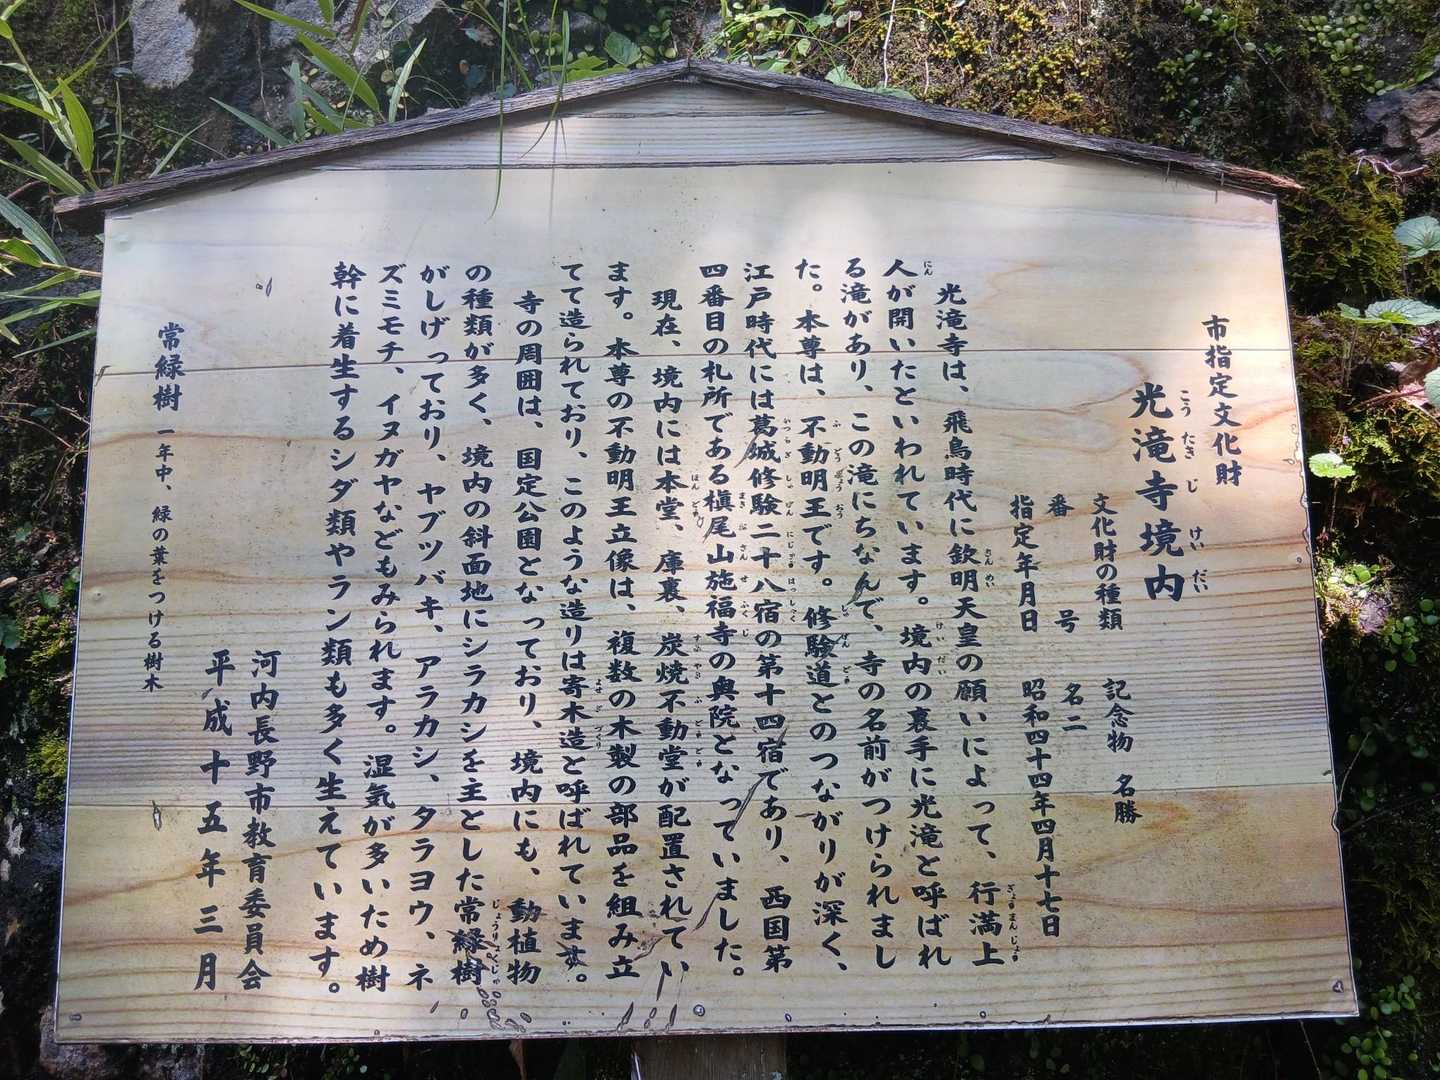 市指定文化財
光滝寺境内
文化財の種類 記念物 名勝
番号 名二
指定年月日 昭和四十四年四月十七日
光滝寺は、飛鳥時代に欽明天皇の願いによって、行満上
人が開いたといわれています。境内の裏手に光滝と呼ばれ
る滝があり、この滝にちなんで、寺の名前がつけられまし
た。本尊は、不動明王です。修験道とのつながりが深く、
江戸時代には葛城修験二十八宿の第十四宿であり、西国第
四番目の札所である槇尾山施福寺の奥院となっていました。
現在、境内には本堂、庫裏、炭焼不動堂が配置されてい
ます。本尊の不動明王立像は、複数の木製の部品を組み立
てて造られており、このような造りは寄木造と呼ばれています。
寺の周囲は、国定公園となっており、境内にも、動植物
の種類が多く、境内の斜面地にシラカシを主とした常緑樹
がしげっており、ヤブツバキ、アラカシ、タラヨウ、ネ
ズミモチ、イヌガヤなどもみられます。湿気が多いため樹
幹に着生するシダ類やラン類も多く生えています。
河内長野市教育委員会
平成十五年三月
常緑樹 一年中、緑の葉をつける樹木